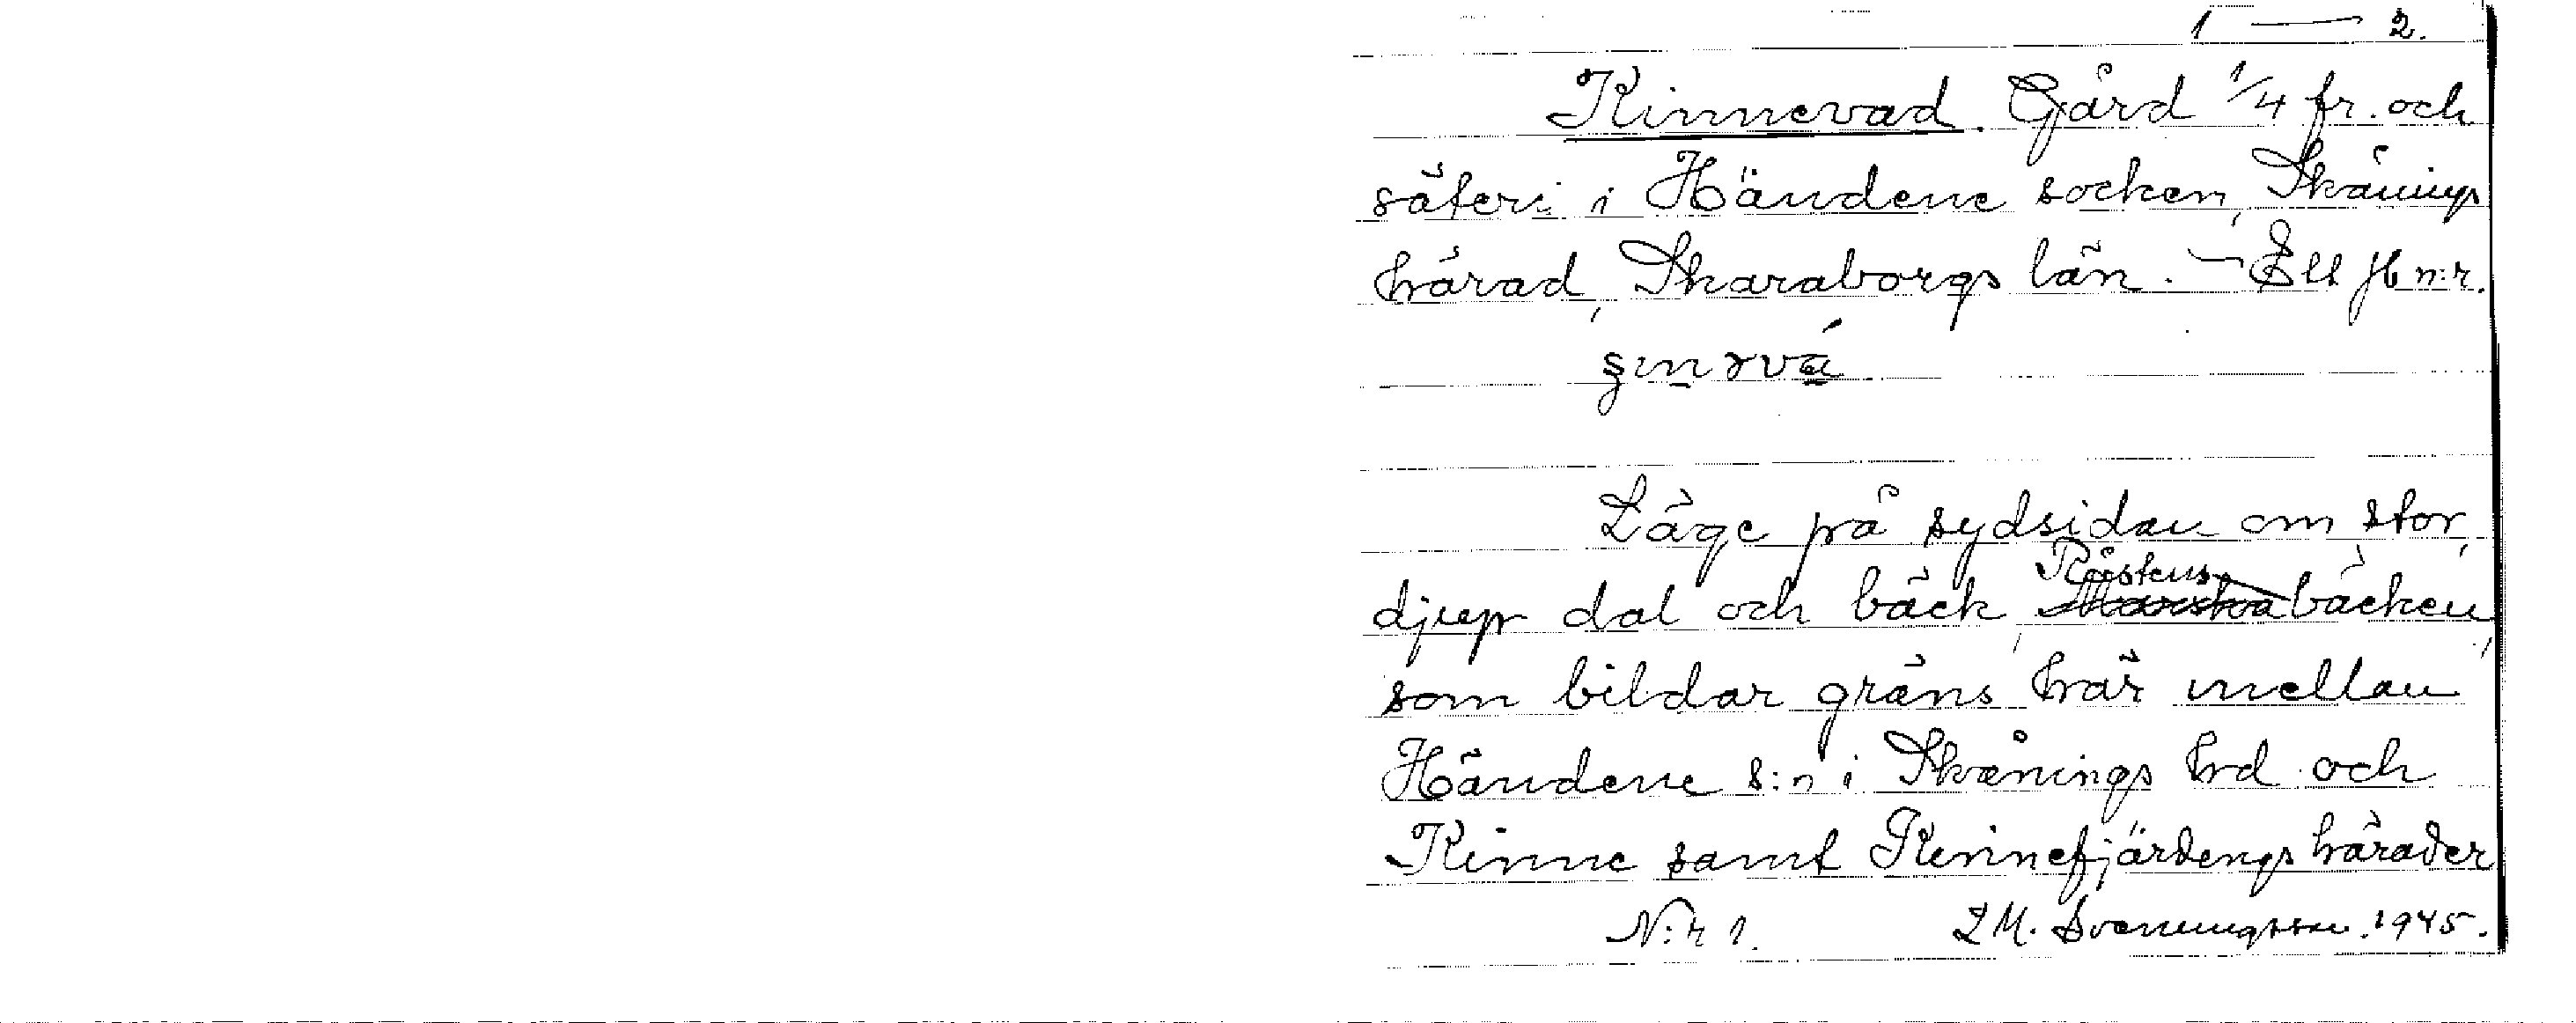 1 — 2.
Kinnevad. Gård 1/4 fr. och
säteri i Händene socken, Skånings
härad, Skaraborgs län. — Ett jb n:r.
Läge på sydsidan om stor,
djup dal och bäck, bäcken,
som bildar gräns här mellan
Händene s:n i Skånings hrd och
Kinne samt Kinnefjärdings härader
N:r 1. L M. Svenungsson. 1945.